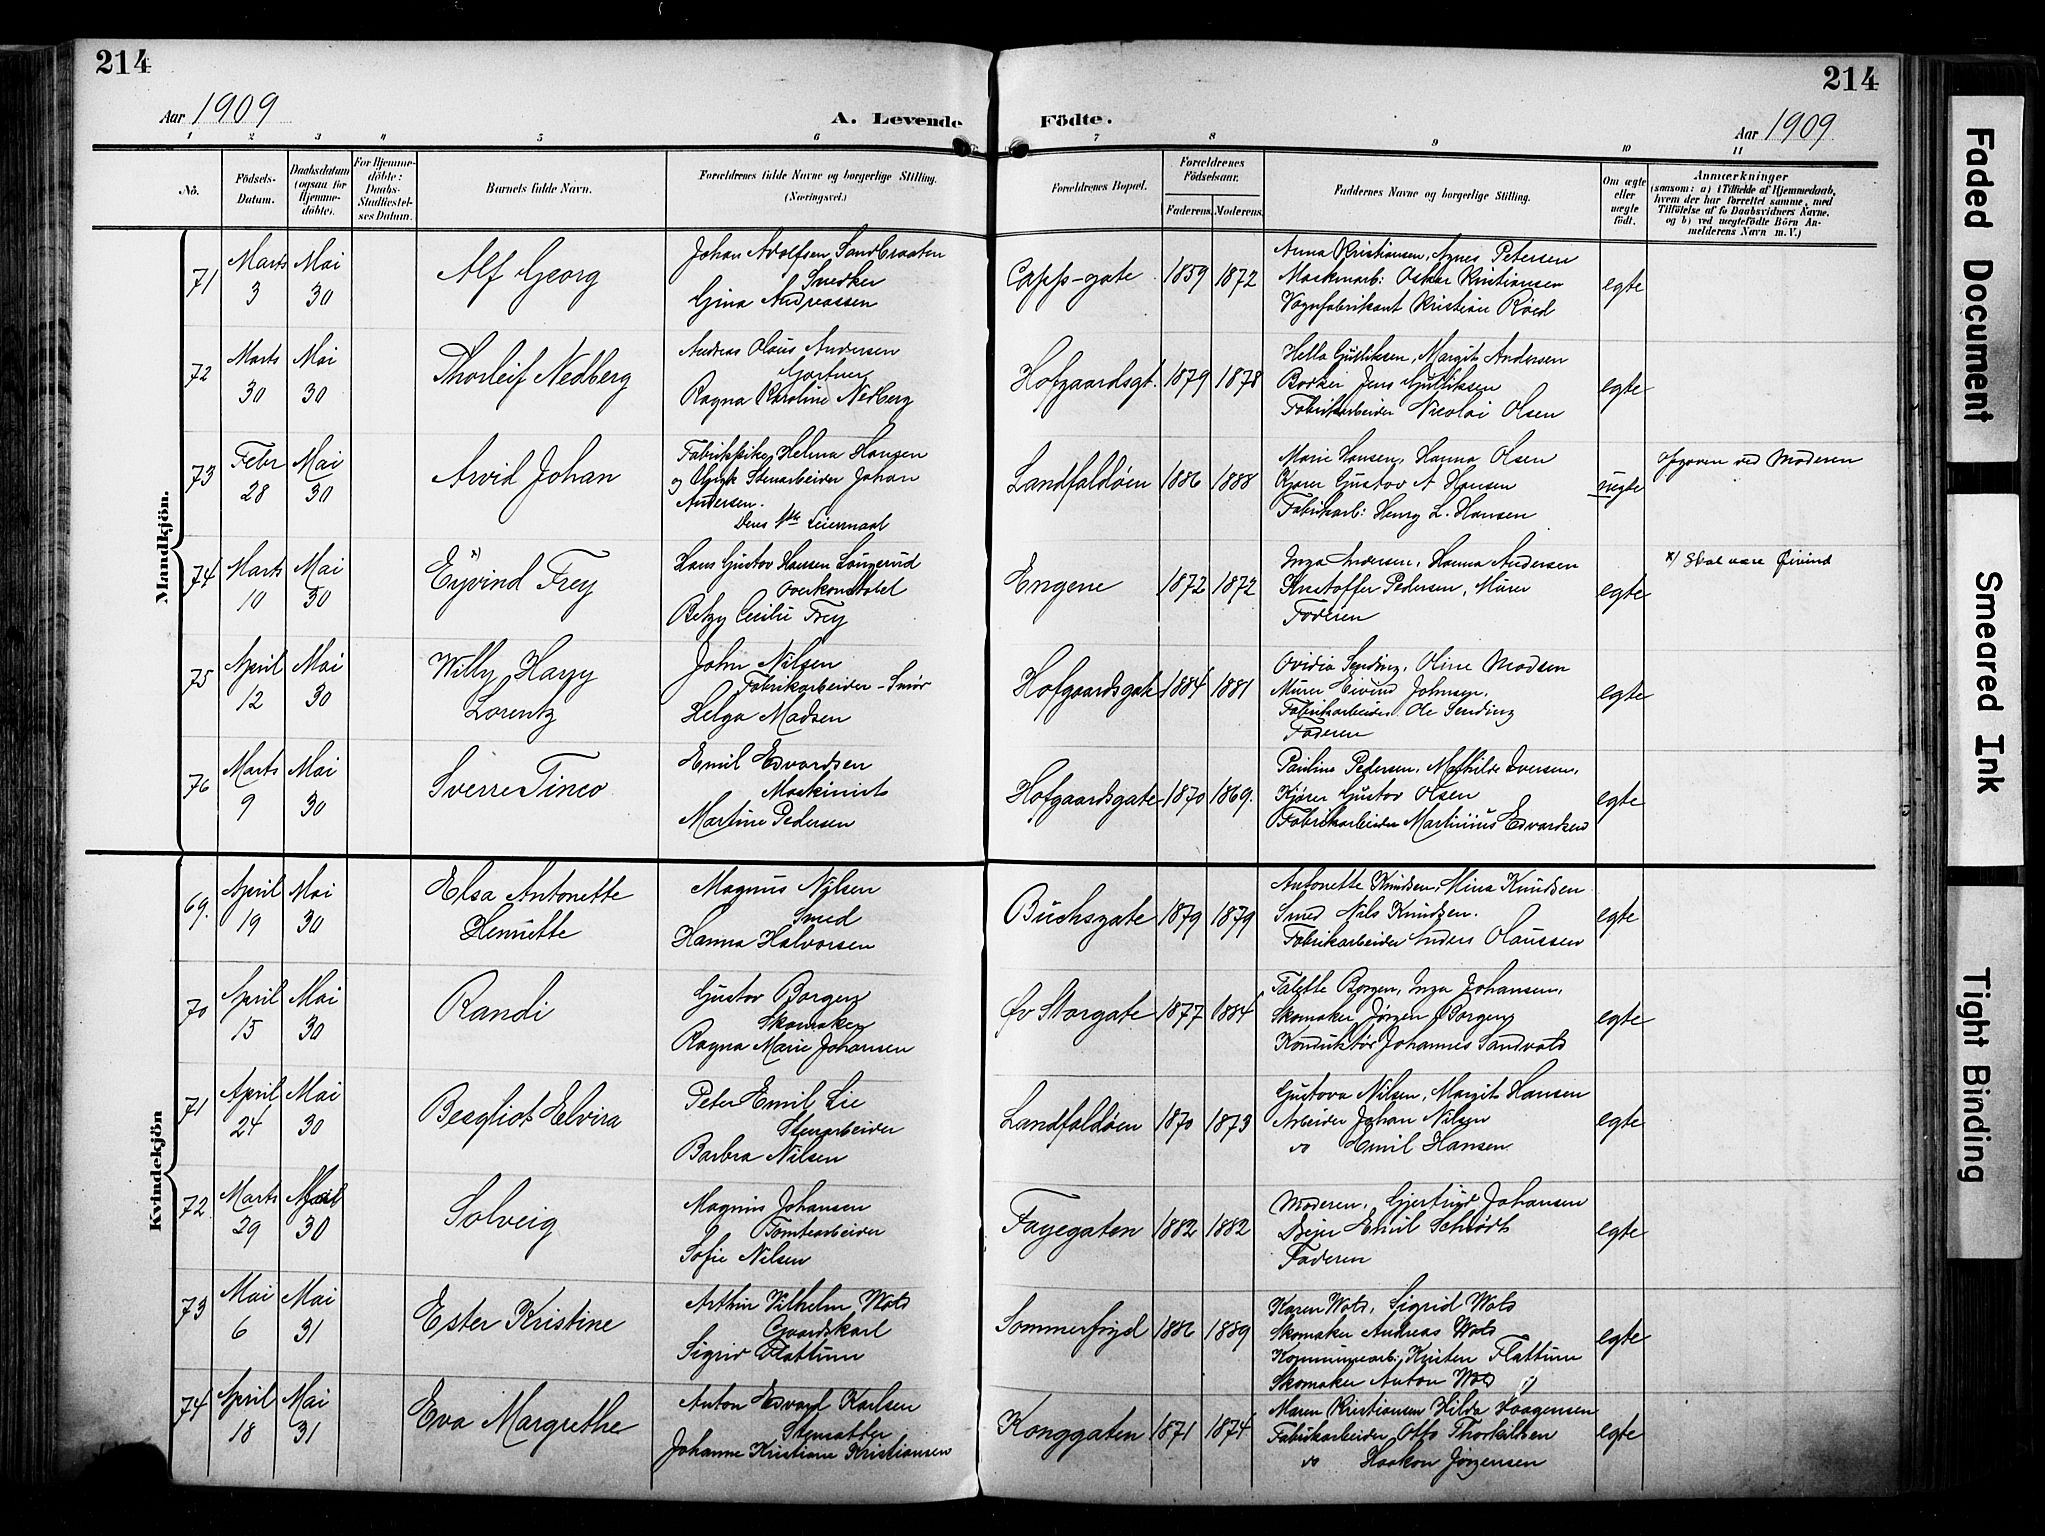 214
214
Aar 1909
A. Levende Födte.
Aar 1909
1 2 3 4 5 6 7 8 9 10 11
No.
Födsels-Datum.
Daabsdatum (ogsaa for Hjemme-döbte).
For Hjemme-döbte: Daabs-Stadfæstel-ses Datum.
Barnets fulde Navn.
Forældrenes fulde Navne og borgerlige Stilling. (Næringsvei.)
Forældrenes Bopæl.
Forældrenes Födselsaar.
Faderens. Moderens.
Faddernes Navne og borgerlige Stilling.
Om ægte eller uægte født.
Anmærkninger
(saasom: a) i Tilfælde af Hjemmedaab,
hvem der har forrettet samme, med
Tilföielse af to Daabsvidners Navne.
og b) ved uægtefödte Börn An-
melderens Navn m. V.)
Mandkjön.
71 Marts 3 Mai 30 Alf Georg
Johan Adolfsen Sandbraaten
Snedker
Gina Andreassen
Capps-gate 1859 1872
Anna Kristiansen, Agnes Petersen
Maskinarb: Oskar Kristiansen
Vognfabrikant Kristian Röed
egte
72 Marts 30 Mai 30 Thorleif Nedberg
Andreas Olaus Andersen
Gartner
Ragna Karoline Nedberg
Hofgaardsgt. 1879 1878
Hella Gulliksen, Margit Andersen
Jens Gulliksen
Fabrikarbeider Nicolai Olsen
egte
73 Febr 28 Mai 30 Arvid Johan
Fabrikspike Helma Hansen
og Ugift Stenarbeider Johan
Andersen.
Deres Leiermaal
Landfaldöen 1886 1888
Marie Hansen, Hanna Olsen
Kjører Gustav A Hansen
Fabrikarb: Henry L. Hansen
uegte
Opgaven ved Moderen
74 Marts 10 Mai 30 Eyvind x) Frey
Hans Gustav Hansen
Overkonstabel
Betzy Cecilie Frey
Engene 1872 1872
Inga Andersen, Hanna Andersen
Kristoffer Pedersen, Murer
Faderen
egte
x/ Skal være Øivind
75 April 12 Mai 30 Willy Harry
Lorentz
John Nilsen
Fabrikarbeider - Smør
Helga Madsen
Hofgaardsgate 1884 1881
Ovidia Sending, Oline Madsen
Murer Eivind Johnsen,
Fabrikarbeider Ole Sending
Faderen
egte
76 Marts 9 Mai 30 Sverre Tinco
Emil Edvardsen
Maskinist
Martine Pedersen
Hofgaardsgate 1870 1869.
Pauline Pedersen, Mathilde Iversen,
Kjører Gustav Olsen
Fabrikarbeider Martinius Edvardsen
egte
Kvindekjön
69. April 19 Mai 30 Elsa Antonette
Henriette
Magnus Nilsen
Smed
Hanna Halvorsen
Buchsgate 1879 1879
Antonette Knudsen, Mina Knudsen
Smed Nils Knudsen.
Fabrikarbeider Anders Olaussen
egte
70 April 15 Mai 30 Randi
Gustav Borgen
Skomaker
Ragna Marie Johansen
Øv Storgate 1877 1884
Talette Borgen, Inga Johansen,
Skomaker Jørgen Borgen
Konduktør Johannes Sandvold
egte
71 April 24 Mai 30 Bergliot Elvira
Peter Emil Lie
Stenarbeider
Barbra Nilsen
Landfaldöen 1870 1873
Gustava Nilsen, Margit Hansen
Arbeider Johan Nilsen
do Emil Hansen
egte
72 Marts 29 Mai 30 Solveig
Magnus Johansen
Tomtearbeider
Sofie Nilsen
Fagegaten 1882 1882
Moderen, Gjertrud Johansen
Emil
Faderen
egte
73 Mai 6 Mai 31 Ester Kristine
Arthur Vilhelm Wold
Gaardskarl
Sigrid Flattum
Sommerfryd 1886 1889
Karen Wold, Sigrid Wold
Skomaker Andreas Wold
Kommunearb: Kristen Flattum
Skomaker Anton Wold
egte
74 April 18 Mai 31 Eva Margrethe
Anton Edvard Karlsen
Stensætter
Johanne Kristiane Kristiansen
Konggaten 1871 1874
Maren Kristiansen Hilda Haagensen
Fabrikarbeider Otto Thorkildsen
do Haakon Jørgensen
egte
Faded Document
Smeared Ink
Tight Binding